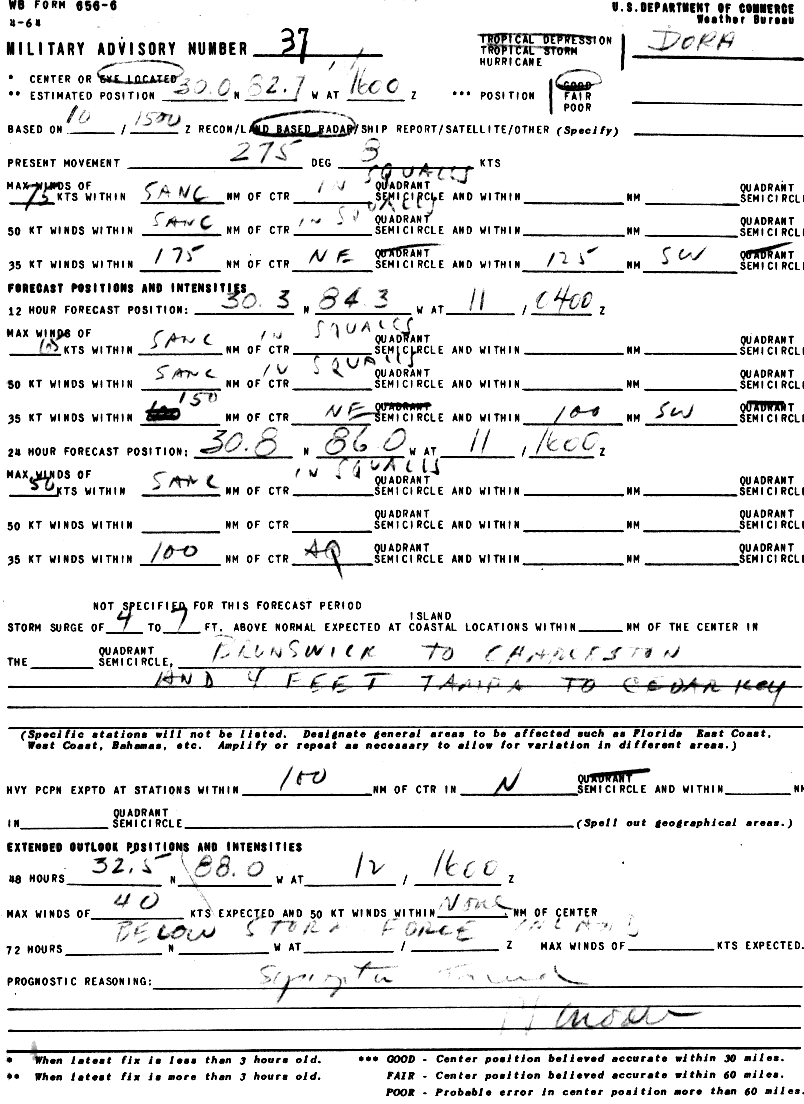 WB FORM 656-6 U.S.DEPARTMENT OF COMMERCE
4-64 Weather Bureau
MILITARY ADVISORY NUMBER 37 TROPICAL DEPRESSION DORA
TROPICAL STORM
HURRICANE
* CENTER OR EYE LOCATED GOOD
** ESTIMATED POSITION 30.0 N 82.7 W AT 1600 Z *** POSITION FAIR
POOR
BASED ON 10 / 1500 Z RECON/LAND BASED RADAR/SHIP REPORT/SATELLITE/OTHER (Specify)
PRESENT MOVEMENT 275 DEG 3 KTS
MAX WINDS OF SQUALLS QUADRANT QUADRANT
75 KTS WITHIN SANC NM OF CTR IN SEMICIRCLE AND WITHIN NM SEMICIRCLE
50 KT WINDS WITHIN SANC NM OF CTR IN SQUALLS QUADRANT SEMICIRCLE AND WITHIN NM QUADRANT SEMICIRCLE
35 KT WINDS WITHIN 175 NM OF CTR NE QUADRANT SEMICIRCLE AND WITHIN 125 NM SW QUADRANT SEMICIRCLE
FORECAST POSITIONS AND INTENSITIES
12 HOUR FORECAST POSITION: 30.3 N 84.3 W AT 11 / 0400 Z
MAX WINDS OF SQUALLS QUADRANT QUADRANT
KTS WITHIN SANC NM OF CTR IN SEMICIRCLE AND WITHIN NM SEMICIRCLE
50 KT WINDS WITHIN SANC NM OF CTR IN SQUALLS QUADRANT SEMICIRCLE AND WITHIN NM QUADRANT SEMICIRCLE
35 KT WINDS WITHIN 150 NM OF CTR NE QUADRANT SEMICIRCLE AND WITHIN 100 NM SW QUADRANT SEMICIRCLE
24 HOUR FORECAST POSITION: 30.8 N 86.0 W AT 11 / 1600 Z
MAX WINDS OF IN SQUALLS QUADRANT QUADRANT
50 KTS WITHIN SANC NM OF CTR SEMICIRCLE AND WITHIN NM SEMICIRCLE
50 KT WINDS WITHIN NM OF CTR QUADRANT SEMICIRCLE AND WITHIN NM QUADRANT SEMICIRCLE
35 KT WINDS WITHIN 100 NM OF CTR AQ QUADRANT SEMICIRCLE AND WITHIN NM QUADRANT SEMICIRCLE
NOT SPECIFIED FOR THIS FORECAST PERIOD
ISLAND
STORM SURGE OF 4 TO 7 FT. ABOVE NORMAL EXPECTED AT COASTAL LOCATIONS WITHIN NM OF THE CENTER IN
THE QUADRANT SEMICIRCLE, BRUNSWICK TO CHARLESTON
AND 4 FEET TAMPA TO CEDAR KEY
(Specific stations will not be listed. Designate general areas to be affected such as Florida East Coast,
West Coast, Bahamas, etc. Amplify or repeat as necessary to allow for variation in different areas.)
HVY PCPN EXPTD AT STATIONS WITHIN 100 NM OF CTR IN N QUADRANT SEMICIRCLE AND WITHIN NM
IN QUADRANT SEMICIRCLE (Spell out geographical areas.)
EXTENDED OUTLOOK POSITIONS AND INTENSITIES
48 HOURS 32.5 N 88.0 W AT 12 / 1600 Z
MAX WINDS OF 40 KTS EXPECTED AND 50 KT WINDS WITHIN NONE NM OF CENTER
BELOW STORM FORCE INLAND
72 HOURS N W AT / Z MAX WINDS OF KTS EXPECTED.
PROGNOSTIC REASONING:
* When latest fix is less than 3 hours old. *** GOOD - Center position believed accurate within 30 miles.
** When latest fix is more than 3 hours old. FAIR - Center position believed accurate within 60 miles.
POOR - Probable error in center position more than 60 miles.